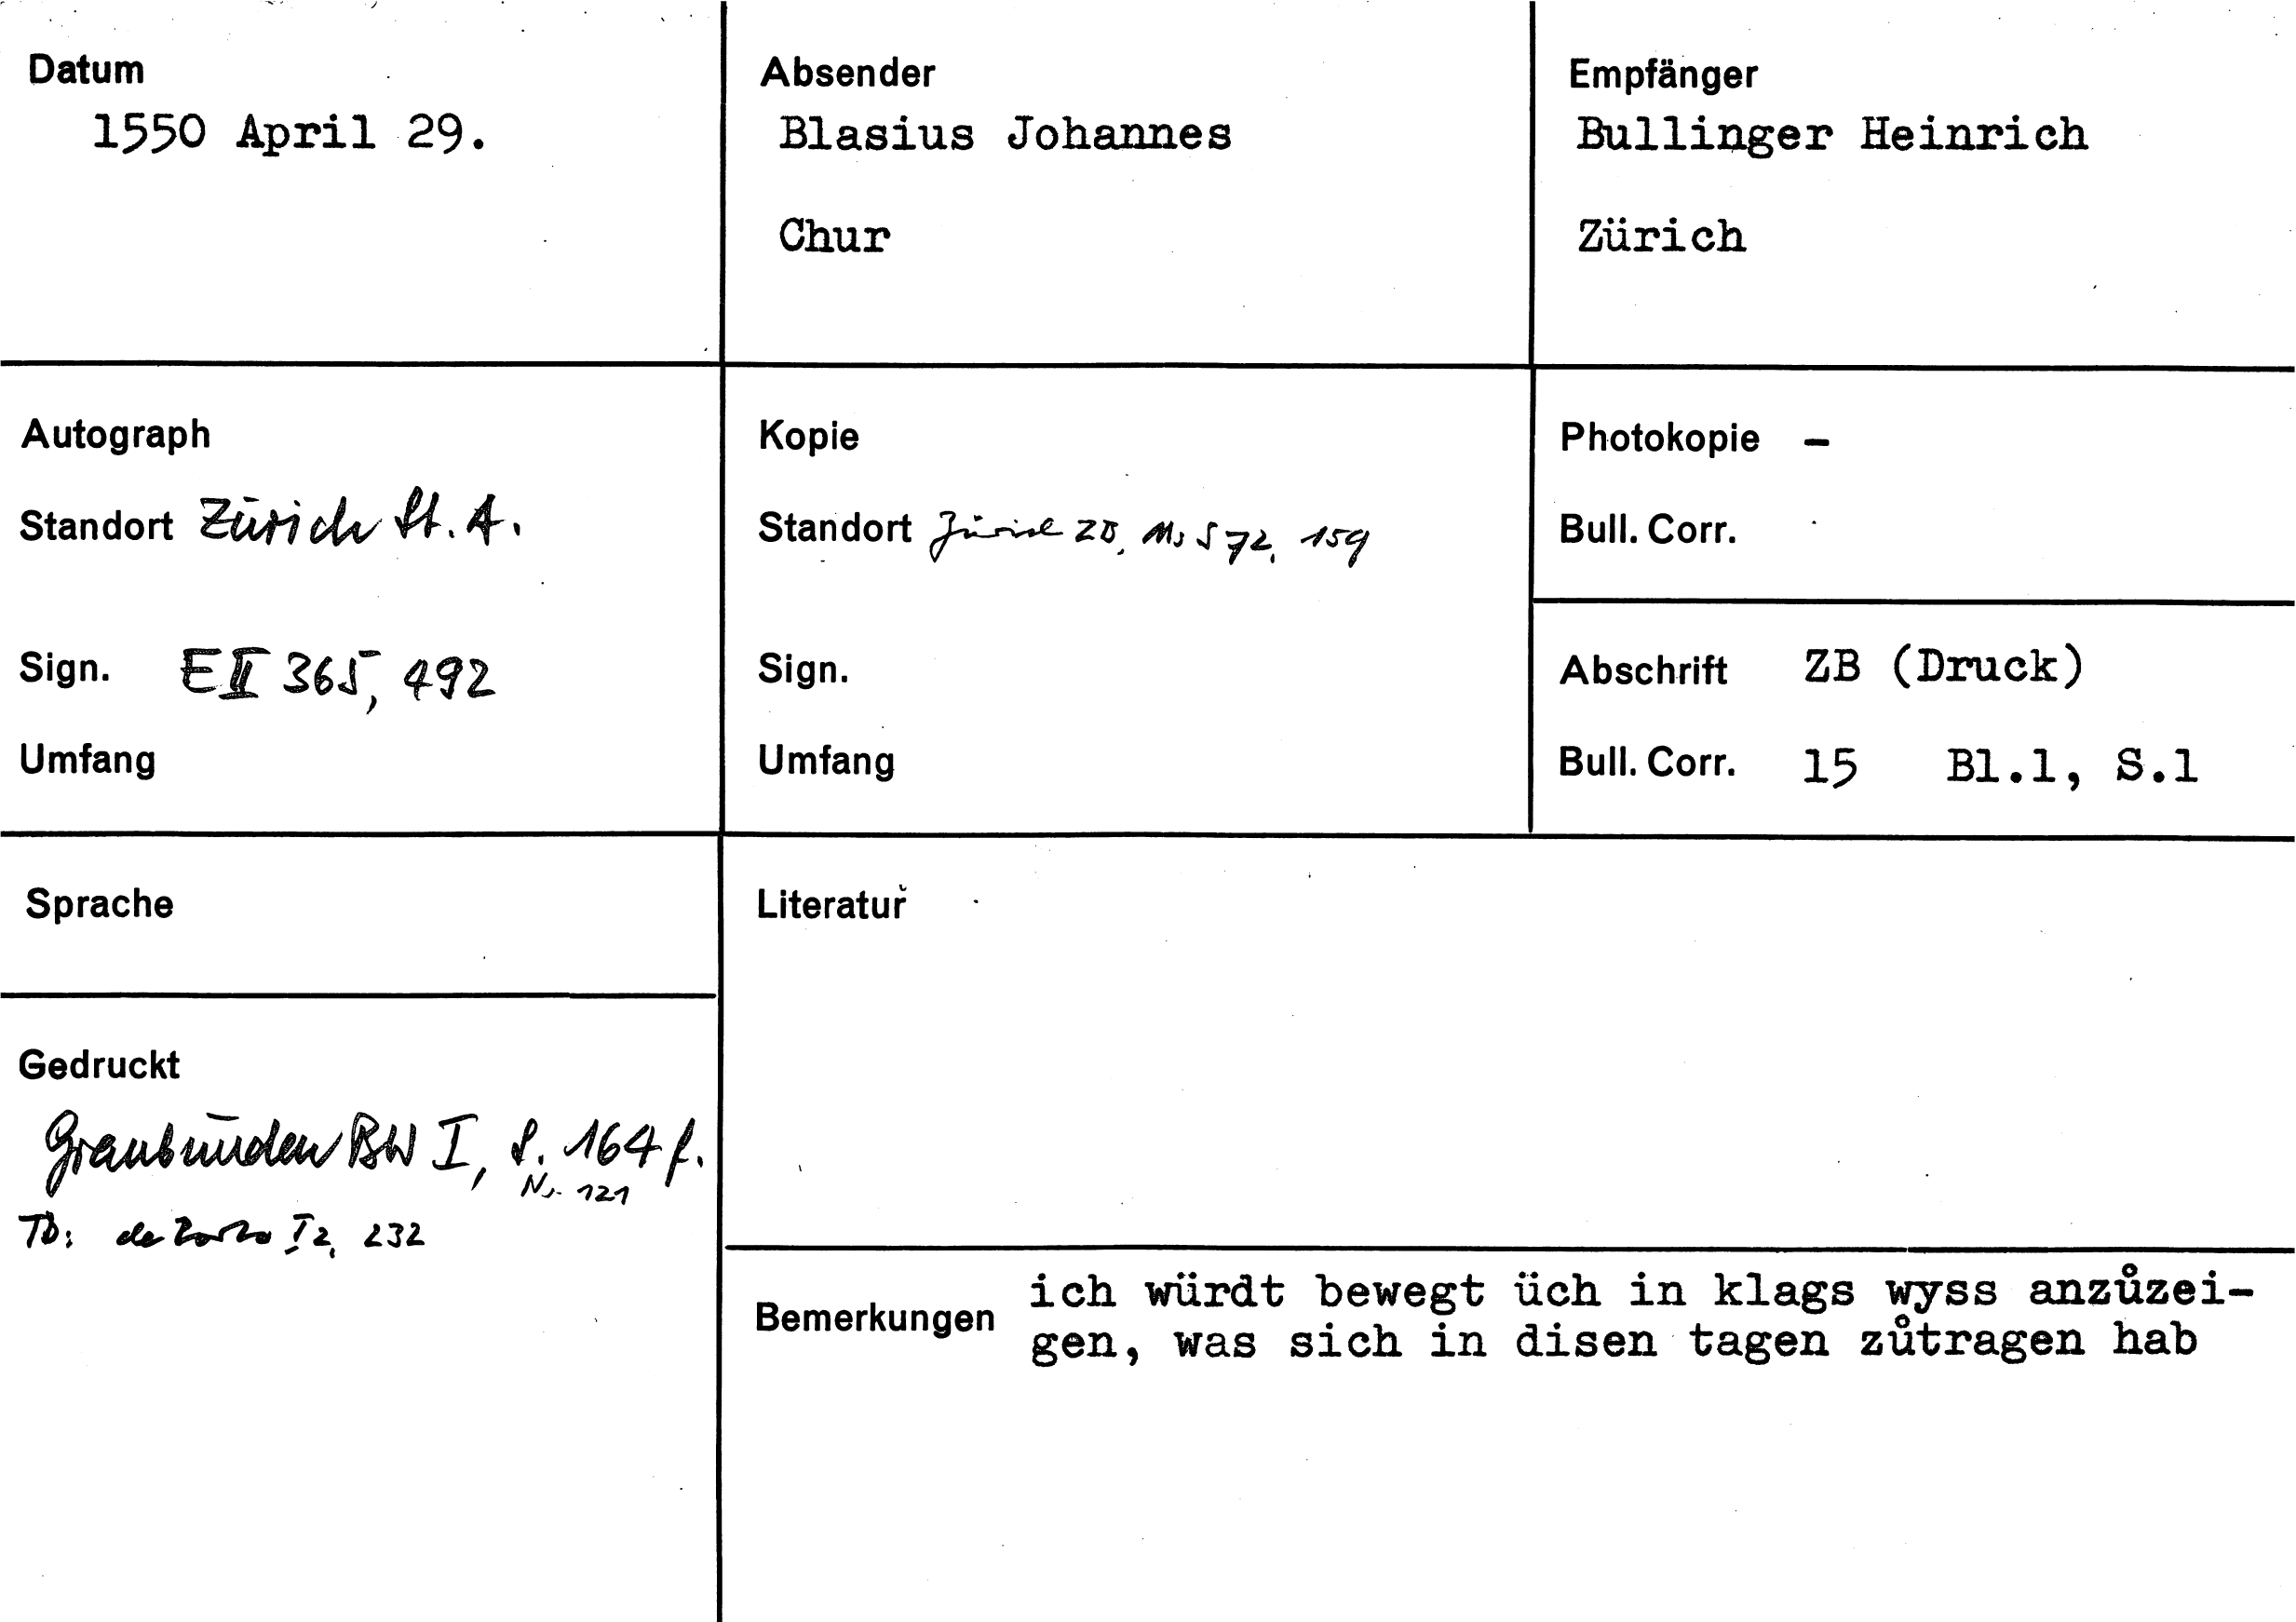 Datum
1550 April 29.
Absender
Blasius Johannes
Chur
Empfänger
Bullinger Heinrich
Zürich
Autograph
Standort Zürich St. A.
Sign. E II 365, 492
Umfang
Kopie
Standort Zürich ZB, Ms S 72, 159
Sign.
Umfang
Photokopie –
Bull. Corr.
Abschrift ZB (Druck)
Bull. Corr. 15 Bl.1, S.1
Sprache
Gedruckt
Graubünden BW I, S. 164 f.
Nr. 121
TD: de Porta I 2, 232
Literatur
Bemerkungen
ich würdt bewegt üch in klags wyss anzůzei-
gen, was sich in disen tagen zůtragen hab